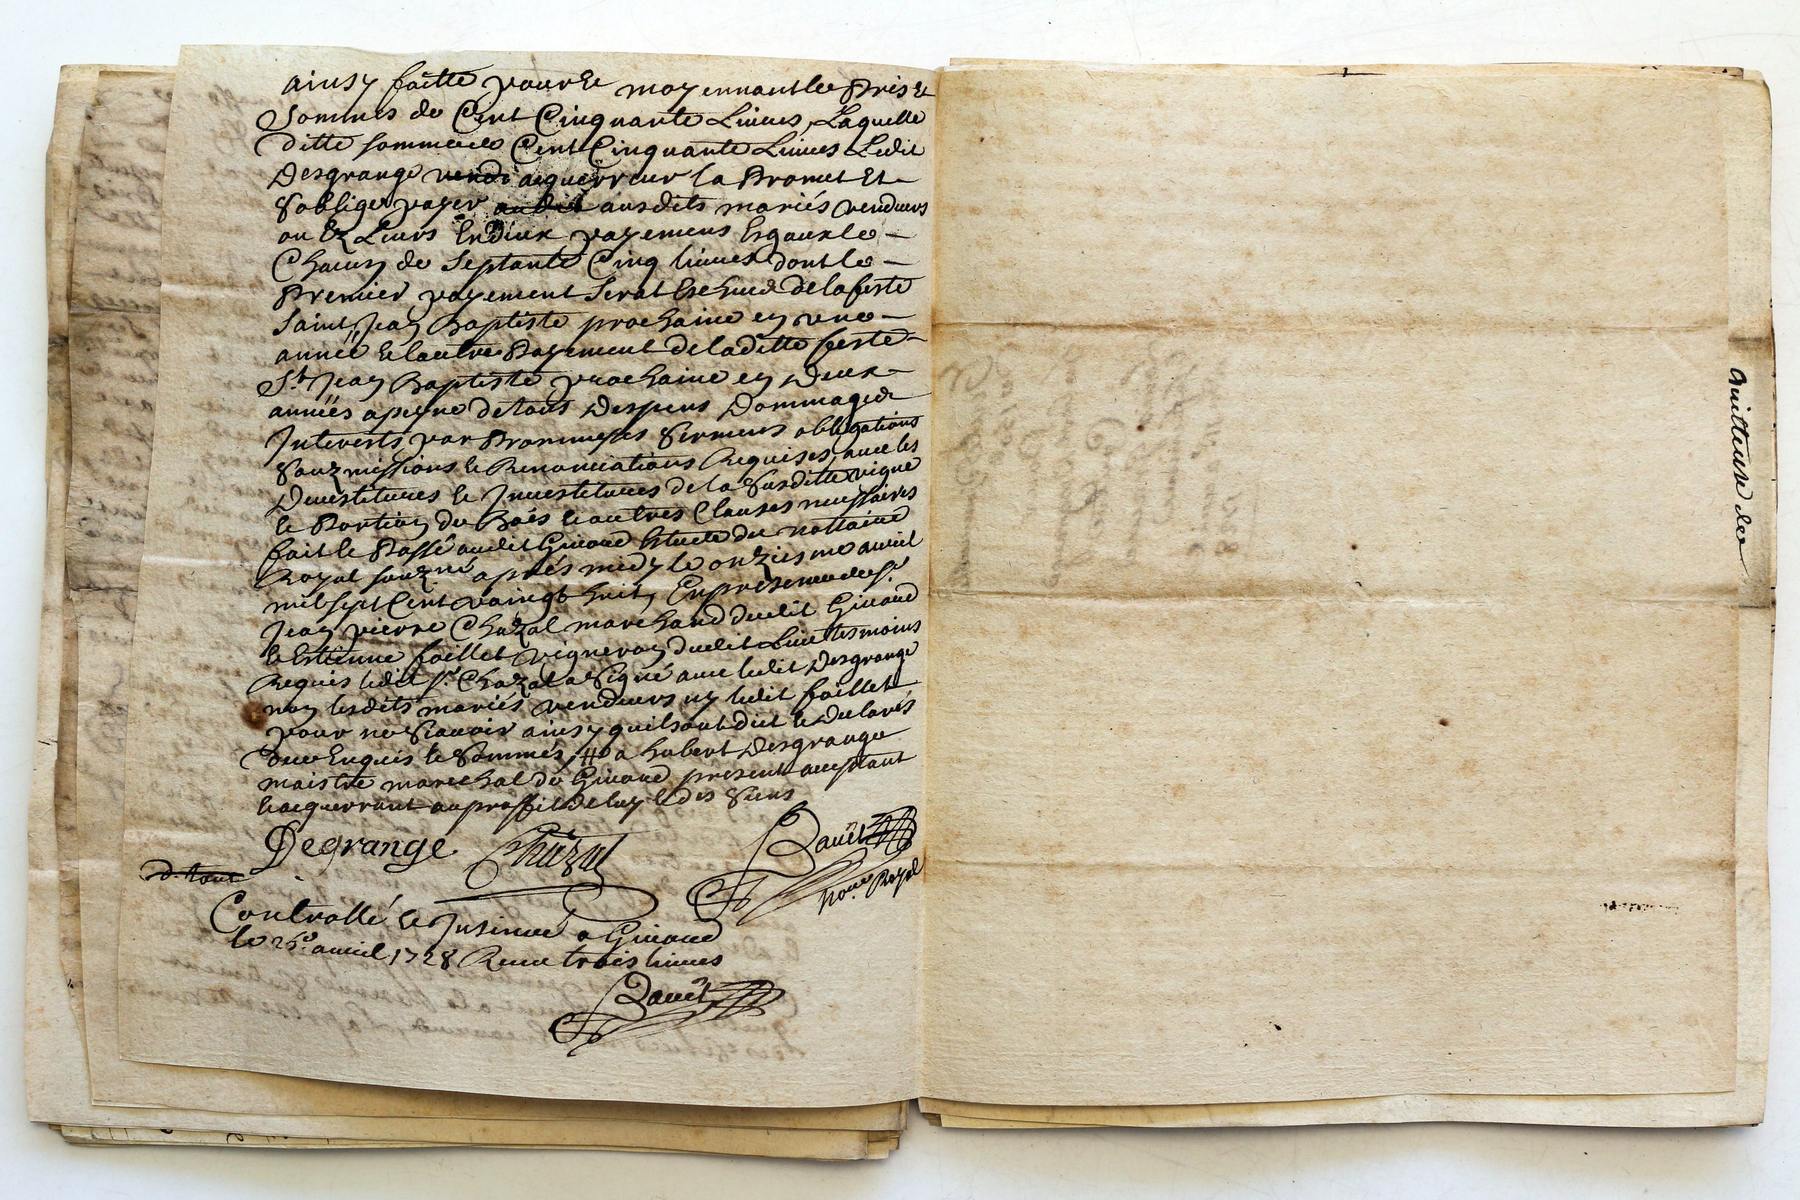 ainsy faitte pour & moyennant le Pris &
Sommes de Cent Cinquante Liures, Laquelle
ditte somme de Cent Cinquante Liures Ledit
Desgrange vendi acquerreur la Promet Et
S'obliger payer audit ausdits mariés vendeurs
ou Ez Leurs En Deux payemens Esgaux le
Chacun de Septante Cinq liures dont le
Premier payement Serat Escheu de la feste
Saint Jean Baptiste prochaine en une
année & lautre Payement de laditte feste
St. Jean Baptiste prochaine en Deux
années apeyne de tous Despens Dommages
Interests par Prommesses Sermens obligations
Souzmissions & Renonciations Requises, auec les
Deuestitures & Inuestitures de la Susditte vigne
& Portion de Bois & autres Clauses necessaires
fait & Passé audit Giuord Estude du nottaire
Royal souzné. aprés midy le onziesme auril
mil sept Cent vaingt huit, En presence de sr.
Jean pierre Chazal marchand dudit Giuord
& Estienne faillet vigneron dudit Lieu tesmoins
Requis ledit sr. Chazal a Signé auec ledit Desgrange
non lesdits mariés vendeurs ny ledit faillet
pour ne Scauoir ainsy quils ont dit & Declarés
Enquis & Sommés, # a hubert Desgrange
maistre marechal de Giuord present acceptant
& acquerrant au proffit de luy & des Siens
Degrange Chazal
not.re Royal
Controllé & Insinué a Giuord
le auril 1728 Receu trois liures
Quittance de